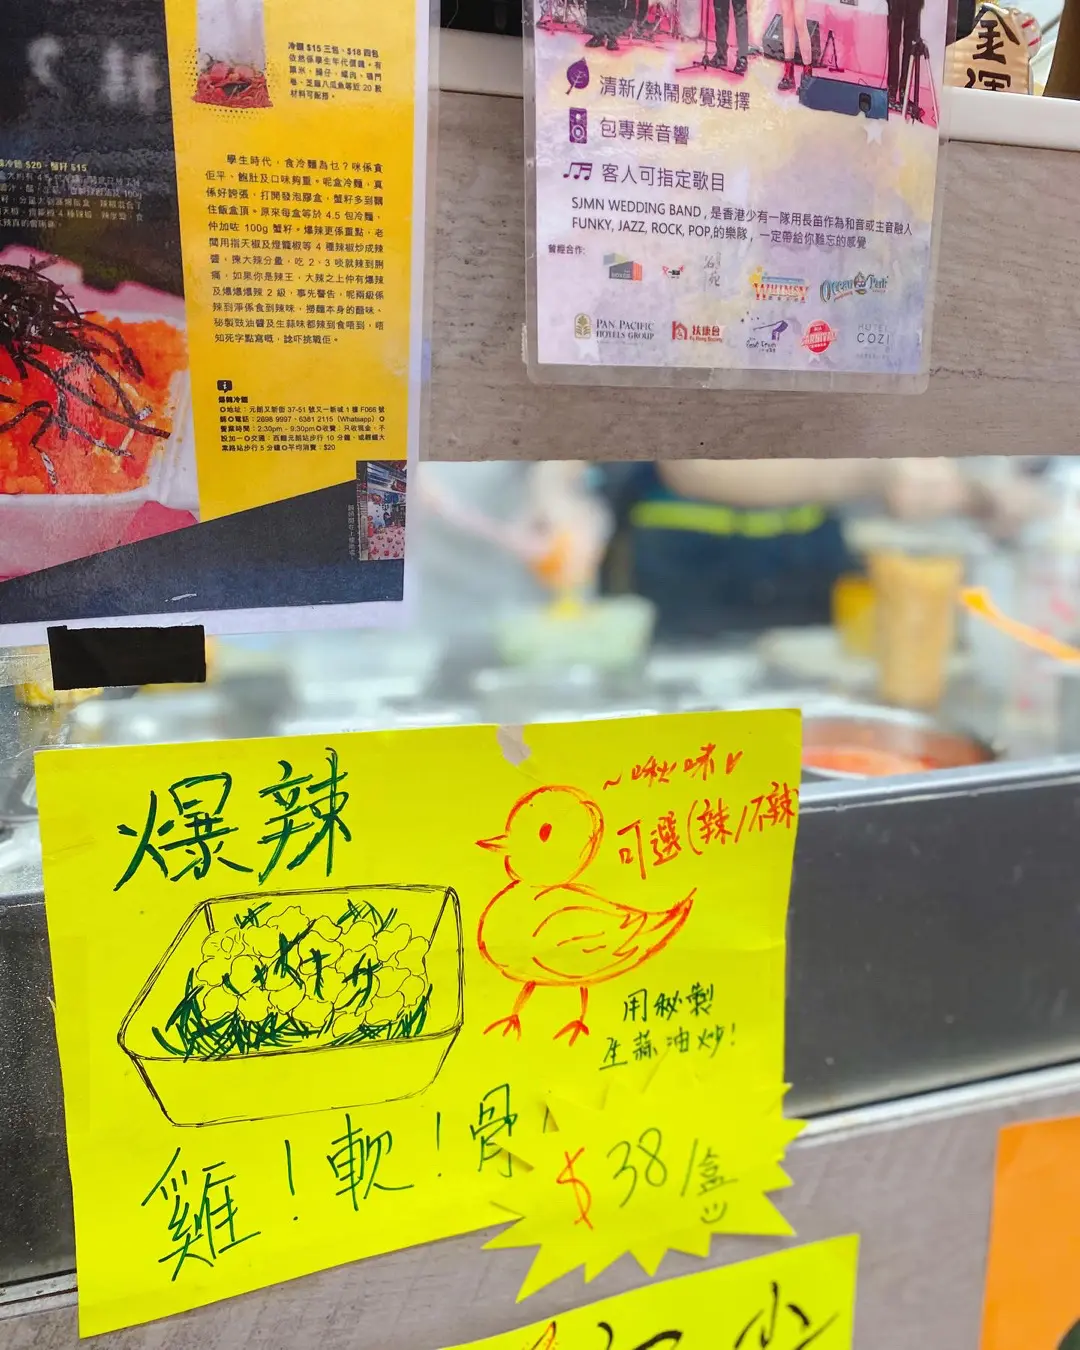 冷麵 $15 三包、$18 四包
依然係學生年代價錢。有
粟米、腸仔、螺肉、鳴門
卷、芝麻八爪魚等近 20 款
材料可配搭。
學生時代，食冷麵為乜？咪係貪
佢平、飽肚及口味夠重。呢盒冷麵，真
係好誇張，打開發泡膠盒，蟹籽多到飄
住飯盒頂。原來每盒等於 4.5 包冷麵，
仲加咗 100g 蟹籽。爆辣更係重點，老
闆用指天椒及燈籠椒等 4 種辣椒炒成辣
醬，揀大辣分量，吃 2、3 啖就辣到脷
痛，如果你是辣王，大辣之上仲有爆辣
及爆爆爆辣 2 級，事先警告，呢兩級係
辣到淨係食到辣味，撈麵本身的麵味、
秘製豉油醬及生蒜味都辣到食唔到，唔
知死字點寫嘅，諗吓挑戰佢。
爆辣冷麵
地址：元朗又新街 37-51 號又一新城 1 樓 F066 號
舖 電話：2698 9997、6381 2115（Whatsapp）
營業時間：2:30pm - 9:30pm 收費：只收現金，不
設加一 交通：西鐵元朗站步行 10 分鐘，或輕鐵大
棠路站步行 5 分鐘 平均消費：$20
清新/熱鬧感覺選擇
包專業音響
客人可指定歌目
SJMN WEDDING BAND , 是香港少有一隊用長笛作為和音或主音融入
FUNKY, JAZZ, ROCK, POP,的樂隊， 一定帶給你難忘的感覺
曾經合作:
WHIMSY
Ocean Park
PAN PACIFIC
HOTELS GROUP
扶康會
HOTEL
COZI
金運
爆辣
~啾味
可選(辣/不辣
用秘製
生蒜油炒!
雞!軟!骨
$38/盒